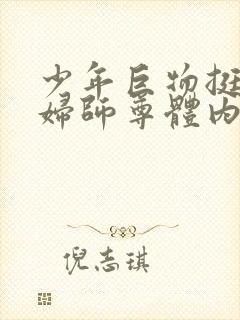 少年巨物挺
婦師尊體內
倪志琪